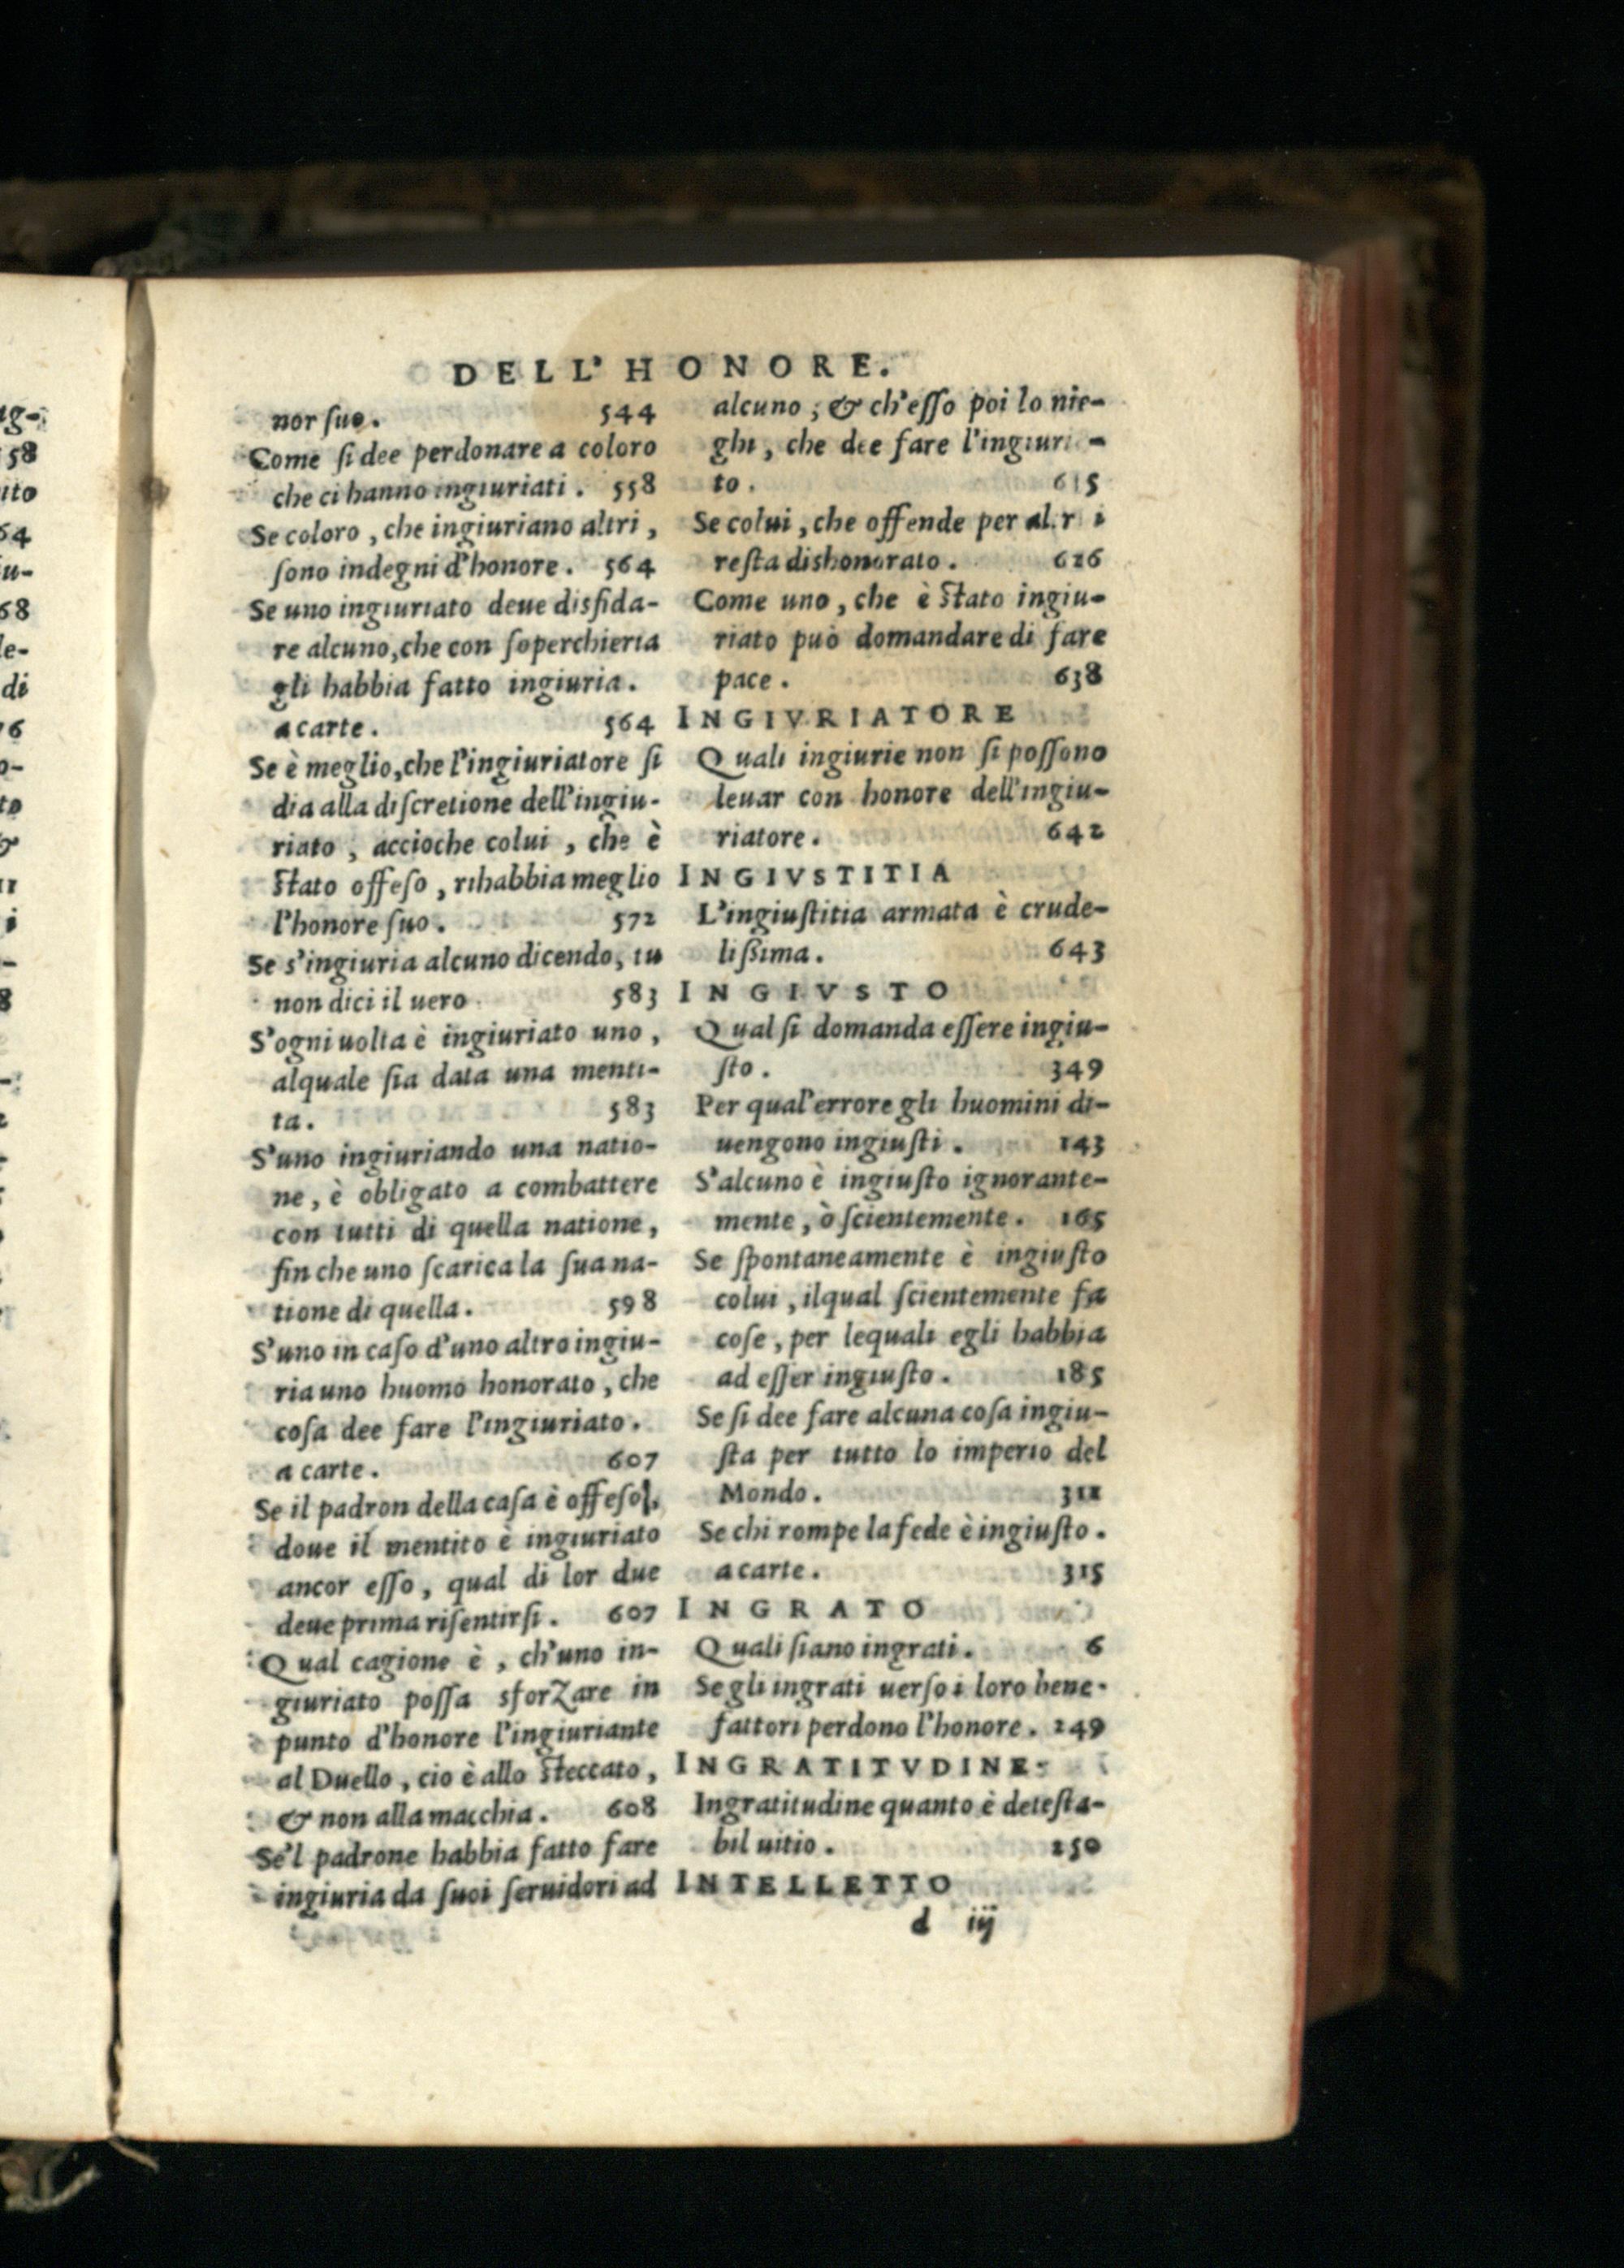 DELL' HONORE.
nor ſuo. 544
Come ſi dee perdonare a coloro
che ci hanno ingiuriati. 558
Se coloro, che ingiuriano altri,
ſono indegni d'honore. 564
Se uno ingiuriato deue disfida-
re alcuno, che con ſoperchieria
gli habbia fatto ingiuria.
a carte. 564
Se è meglio, che l'ingiuriatore ſi
dia alla diſcretione dell'ingiu-
riato, accioche colui, che è
ſtato offeſo, rihabbia meglio
l'honore ſuo. 572
Se s'ingiuria alcuno dicendo, tu
non dici il uero 583
S'ogni uolta è ingiuriato uno,
alquale ſia data una menti-
ta. 583
S'uno ingiuriando una natio-
ne, è obligato a combattere
con tutti di quella natione,
fin che uno ſcarica la ſua na-
tione di quella. 598
S'uno in caſo d'uno altro ingiu-
ria uno huomo honorato, che
coſa dee fare l'ingiuriato.
a carte. 607
Se il padron della caſa è offeſo,
doue il mentito è ingiuriato
ancor eſſo, qual di lor due
deue prima riſentirſi. 607
Qual cagione è, ch'uno in-
giuriato poſſa sforZare in
punto d'honore l'ingiuriante
al Duello, cio è allo ſteccato,
& non alla macchia. 608
Se'l padrone habbia fatto fare
ingiuria da ſuoi ſeruidori ad
alcuno; & ch'eſſo poi lo nie-
ghi, che dee fare l'ingiuri-
to. 615
Se colui, che offende per
reſta dishonorato. 626
Come uno, che è ſtato ingiu-
riato può domandare di fare
pace. 638
INGIVRIATORE
Quali ingiurie non ſi poſſono
leuar con honore dell'ingiu-
riatore. 642
INGIVSTITIA
L'ingiuſtitia armata è crude-
lißima. 643
INGIVSTO
Qual ſi domanda eſſere ingiu-
ſto. 349
Per qual'errore gli huomini di-
uengono ingiuſti. 143
S'alcuno è ingiuſto ignorante-
mente, ò ſcientemente. 165
Se ſpontaneamente è ingiuſto
colui, ilqual ſcientemente fa
coſe, per lequali egli habbia
ad eſſer ingiuſto. 185
Se ſi dee fare alcuna coſa ingiu-
ſta per tutto lo imperio del
Mondo. 312
Se chi rompe la fede è ingiuſto.
a carte. 315
INGRATO
Quali ſiano ingrati. 6
Se gli ingrati uerſo i loro bene-
fattori perdono l'honore. 249
INGRATITVDINE
Ingratitudine quanto è deteſta-
bil uitio. 250
INTELLETTO
d iij